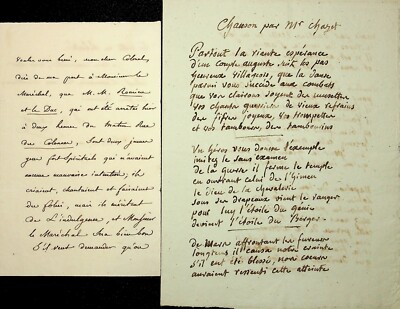 Voulez vous bien, mon cher Colonel,
dire de ma part à Monsieur le
Maréchal, que M. M. Romieu
et le Duc, qui ont été arrêtés hier
à deux heures du matin Rue
du Colombier, sont deux jeunes
gens fort spirituels qui n'avaient
aucune mauvaise intention; ils
criaient, chantaient et faisaient
des folies, mais ils méritent
de l'indulgence, et Monsieur
le Maréchal sera bien bon
s'il veut demander qu'on
Chanson par Mr Chazet
Partout la riante espérance
d'un couple auguste suit les pas
heureux villageois, que la danse
parmi vous succède aux combats
que vos clairons soyent des musettes
vos chants guerriers de vieux refrains
des fifres joyeux, vos trompettes
et vos tambours, des tambourins
Un héros vous donne l'exemple
imitez le sans examen
de la guerre il ferme le temple
en ouvrant celui de l'hymen
le dieu de la chevalerie
sous ses drapeaux vient se ranger
pour luy l'étoile du génie
devient l'étoile du Berger
De Mars affrontant les fureurs
longtems il causa notre crainte
s'il eut été blessé, nos coeurs
auraient ressenti cette atteinte